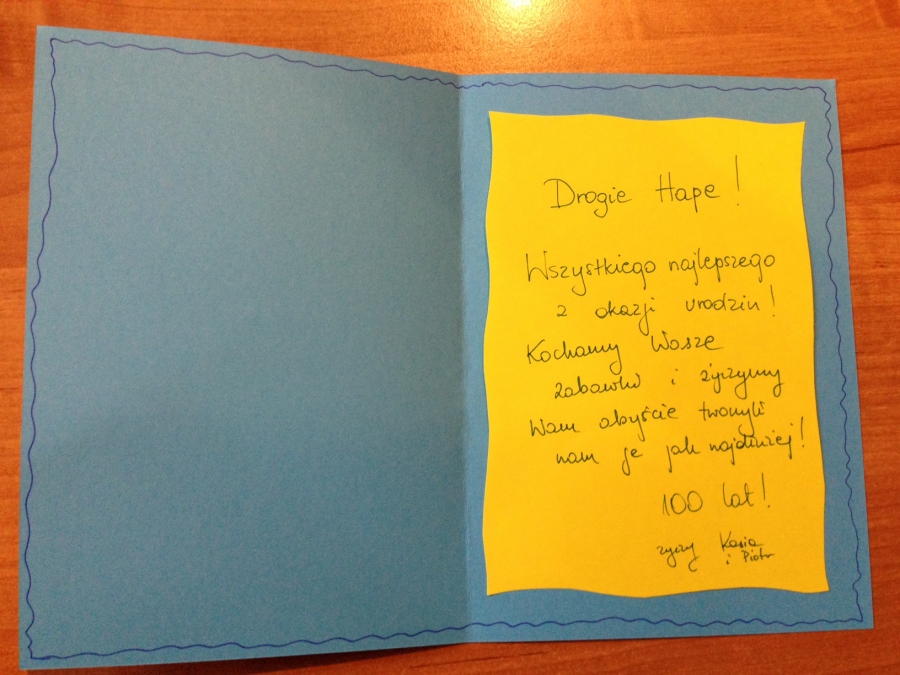 Drogie Hape!
Wszystkiego najlepszego
z okazji urodzin!
Kochamy Wasze
zabawki i życzymy
Wam abyście tworzyli
nam je jak najdłużej!
100 lat!
życzy Kasia
i Piotr